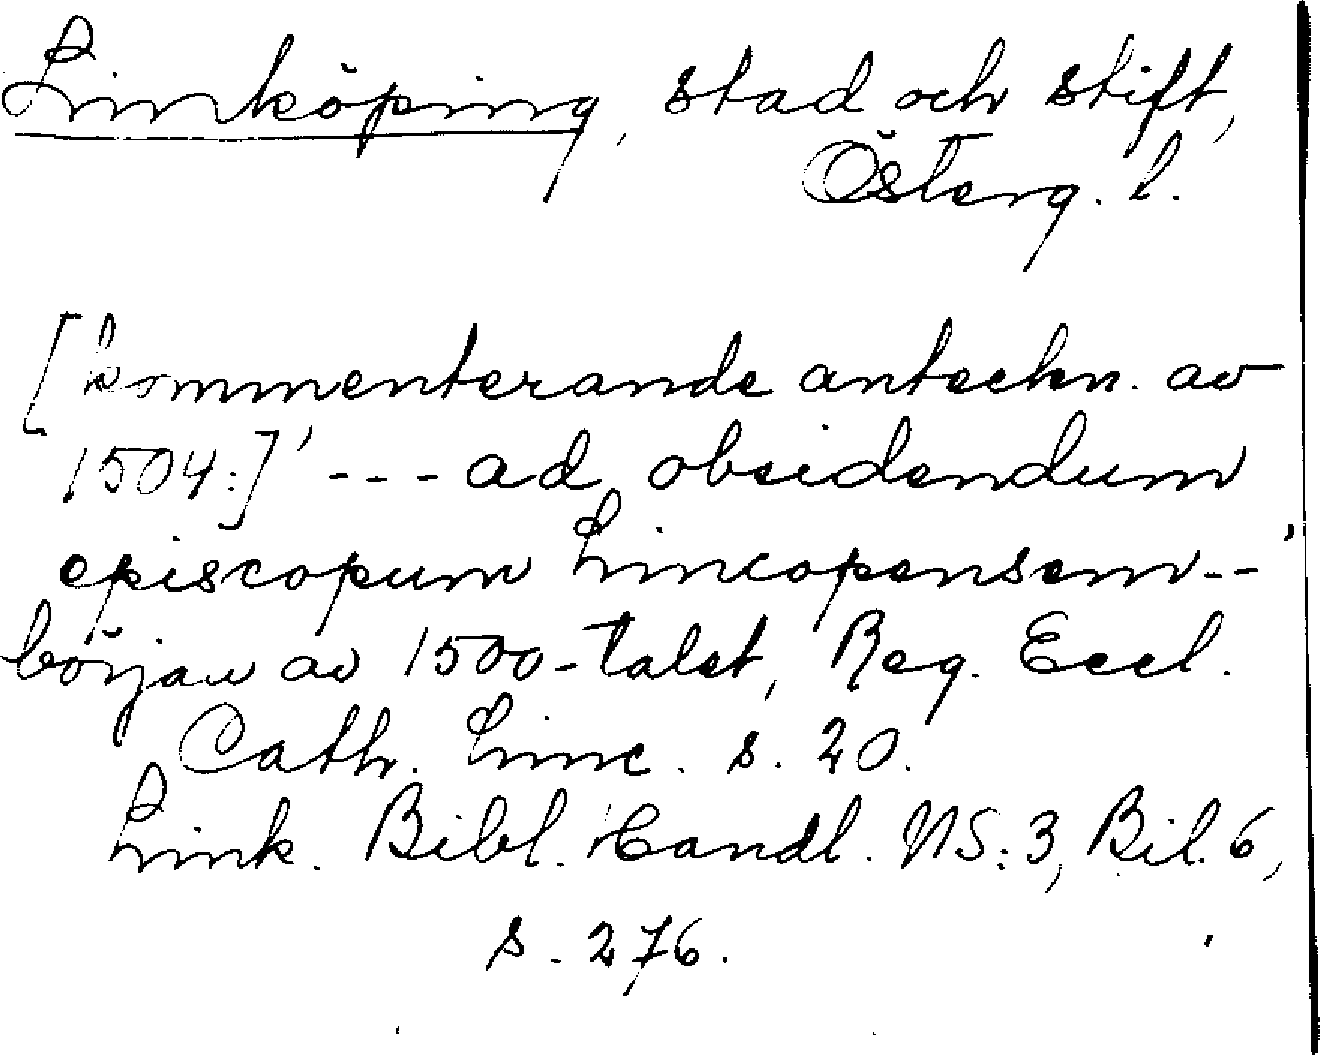 Linköping, stad och stift,
Österg. l.
[kommenterande anteckn. av
1504:]' --- ad obsidendum
episcopum Lincopensem --'
början av 1500-talet, Reg. Eccl.
Cath. Linc. s. 20.
Link. Bibl. Handl. NS: 3, Bil. 6,
s. 276.